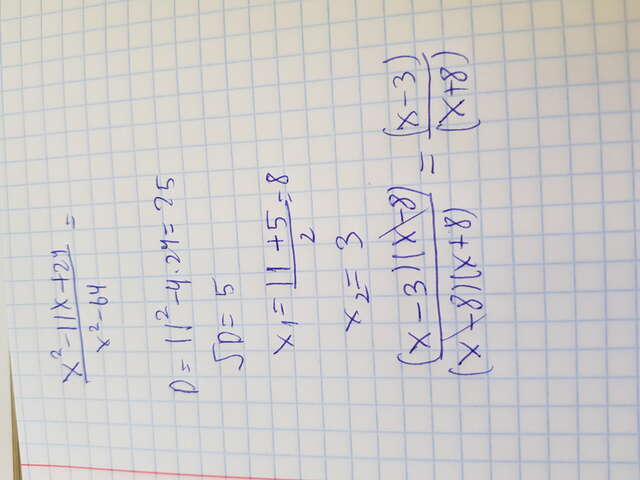 x²-11x+24/x²-64 =
D = 11²-4·24= 25
√D= 5
x₁= 11+5/2 = 8
x₂= 3
(x-3)(x-8)/(x-8)(x+8) = (x-3)/(x+8)